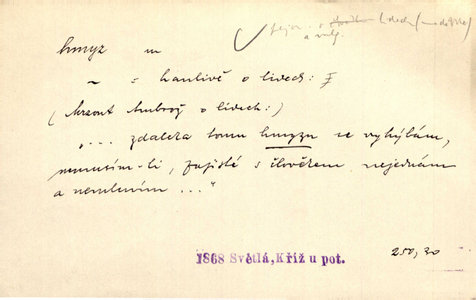 hmyz m
~ s hanlivě o lidech:
( Ambrož o lidech:)
"... zdaleka tomu hmyzu se vyhýbám,
nemusím-li, zajisté s člověkem nejednám
a nemluvím ..."
1868 Světlá, Kříž u pot.
250, 30